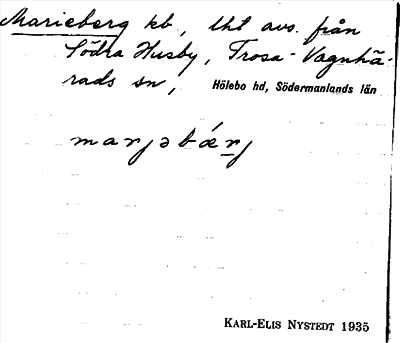 Marieberg kb, lht avs. från
Södra Husby, Trosa-Vagnhä-
rads sn, Hölebo hd, Södermanlands län
marjəbǽrj
KARL-ELIS NYSTEDT 1935